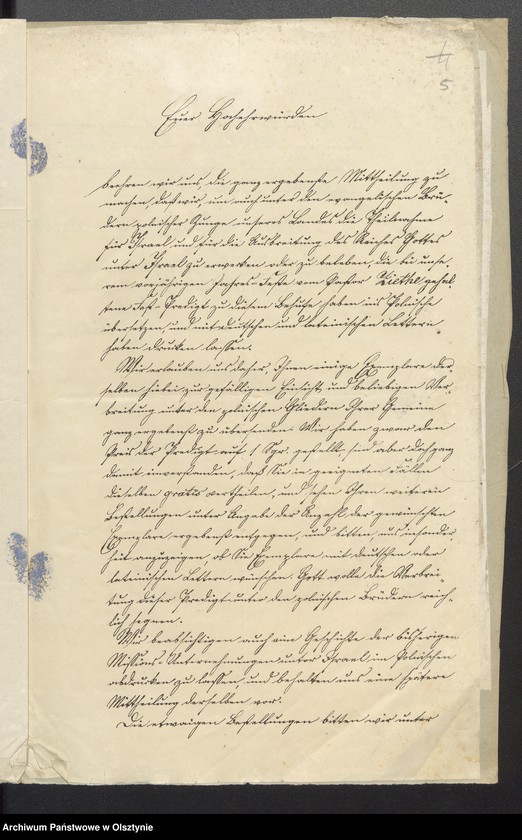 4
5
Euer Hochehrwürden
beehren wir uns, die ganz ergebenste Mittheilung zu
machen, daß wir, um auch unter den evangelischen Brü-
dern polnischer Zunge unseres Landes die Theilnahme
für Israel und für die Ausbreitung des Reiches Gottes
unter Israel zu erwecken oder zu beleben, die bei unse-
rem vorjährigen Jahres-Feste vom Pastor Ziethe gehal-
tene Fest-Predigt zu diesem Behufe haben ins Polnische
übersetzen, und mit deutschen und lateinischen Lettern
haben drucken lassen.
Wir erlauben uns daher, Ihnen einige Exemplare der-
selben hiebei zur gefälligen Einsicht und beliebigen Ver-
breitung unter den polnischen Gliedern Ihrer Gemeine
ganz ergebenst zu übersenden. Wir haben zwar den
Preis der Predigt auf 1 Sgr. gestellt, sind aber doch ganz
damit einverstanden, daß Sie in geeigneten Fällen
dieselben gratis vertheilen, und sehen Ihren weiteren
Bestellungen unter Angabe der Anzahl der gewünschten
Exemplare ergebenst entgegen, und bitten, uns insonder-
heit anzuzeigen, ob Sie Exemplare mit deutschen oder
lateinischen Lettern wünschen. Gott wolle die Verbrei-
tung dieser Predigt unter den polnischen Brüdern reich-
lich segnen.
Wir beabsichtigen auch eine Geschichte der bisherigen
Missions-Unternehmungen unter Israel im Polnischen
abdrucken zu lassen, und behalten uns eine spätere
Mittheilung derselben vor.
Die etwaigen Bestellungen bitten wir unter
Archiwum Państwowe w Olsztynie